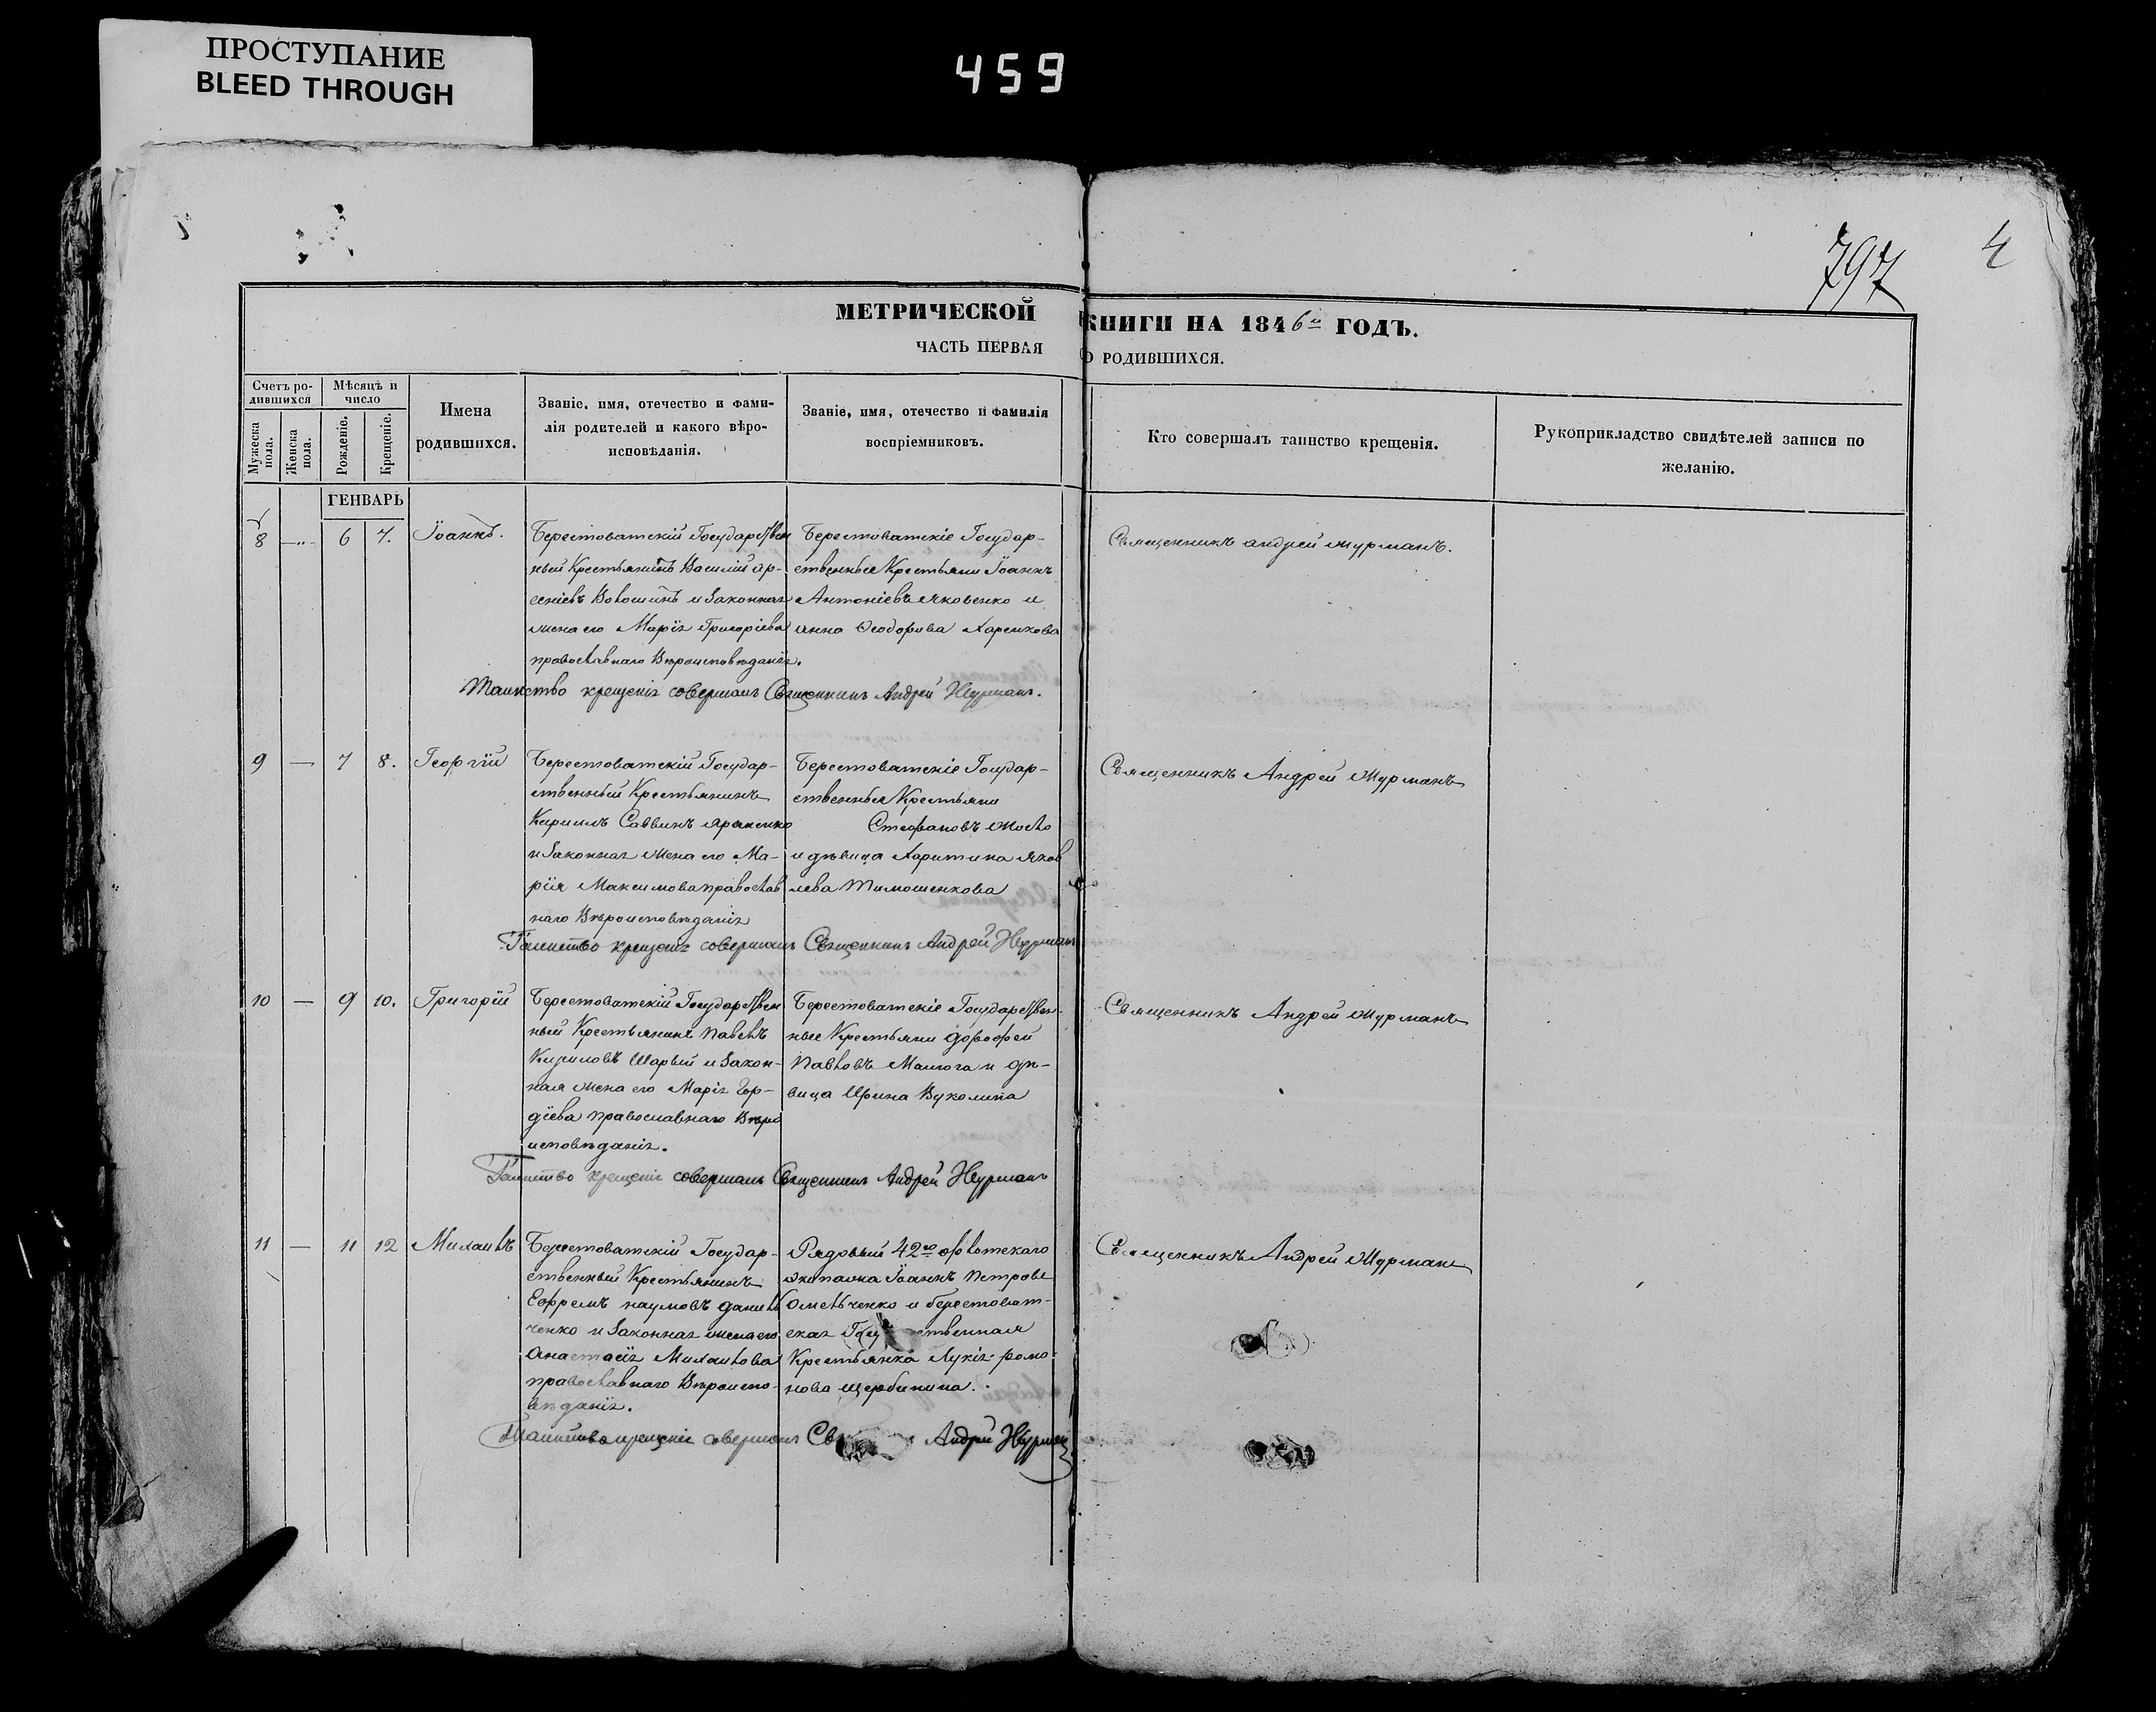 ПРОСТУПАНИЕ
BLEED THROUGH
459
797
4
МЕТРИЧЕСКОЙ КНИГИ НА 1846й ГОДЪ.
ЧАСТЬ ПЕРВАЯ О РОДИВШИХСЯ.
Счетъ ро-
дившихся
Мужеска пола.
Женска пола.
Мѣсяцъ и
число
Рожденіе.
Крещеніе.
Имена
родившихся.
Званіе, имя, отечество и фами-
лія родителей и какого вѣро-
исповѣданія.
Званіе, имя, отечество и фамилія
воспріемниковъ.
Кто совершалъ таинство крещенія.
Рукоприкладство свидѣтелей записи по
желанію.
ГЕНВАРЬ
8 —„— 6 7. Іоаннъ.
Берестоватскій Государствен
ный Крестьянинъ Василій Ар-
сеніевъ Волошинъ и Законная
жена его Марія Григоріева
православнаго Вѣроисповѣданія.
Берестоватскіе Государ-
ственные Крестьяни Іоаннъ
Антоніевъ Яковенко и
Анна Ѳеодорова
Священникъ Андрей Журманъ.
Таинство крещенія совершалъ Священникъ Андрей Журманъ.
9 — 7 8. Георгій
Берестоватскій Государ-
ственный Крестьянинъ
Кирилъ Саввинъ
и Законная жена его Ма-
рія Максимова православ
наго Вѣроисповѣданія
Берестоватскіе Государ-
ственные Крестьяни
Стефановъ
и дѣвица Харитина Яков
лева Тимошенкова
Священникъ Андрей Журманъ
Таинство крещенія совершалъ Священникъ Андрей Журманъ
10 — 9 10. Григорій
Берестоватскій Государствен
ный Крестьянинъ Павелъ
Кириловъ Шарый и Закон-
ная жена его Марія Гор-
діева православнаго Вѣро
исповѣданія.
Берестоватскіе Государствен-
ные Крестьяни Дорофей
Павловъ и дѣ-
вица Ирина
Священникъ Андрей Журманъ
Таинство крещенія совершалъ Священникъ Андрей Журманъ
11 — 11 12 Михаилъ
Берестоватскій Государ-
ственный Крестьянинъ
Ефремъ Наумовъ Данил
ченко и Законная жена его
Анастасія Михаилова
православнаго Вѣроиспо-
вѣданія.
Рядовый 42го флотскаго
экипажа Іоаннъ Петровъ
Омельченко и Берестоват-
ская ственная
Крестьянка Лукія Рома-
нова Щербинина.
Священникъ Андрей Журманъ
Таинство крещенія совершалъ Св Андрей Журманъ